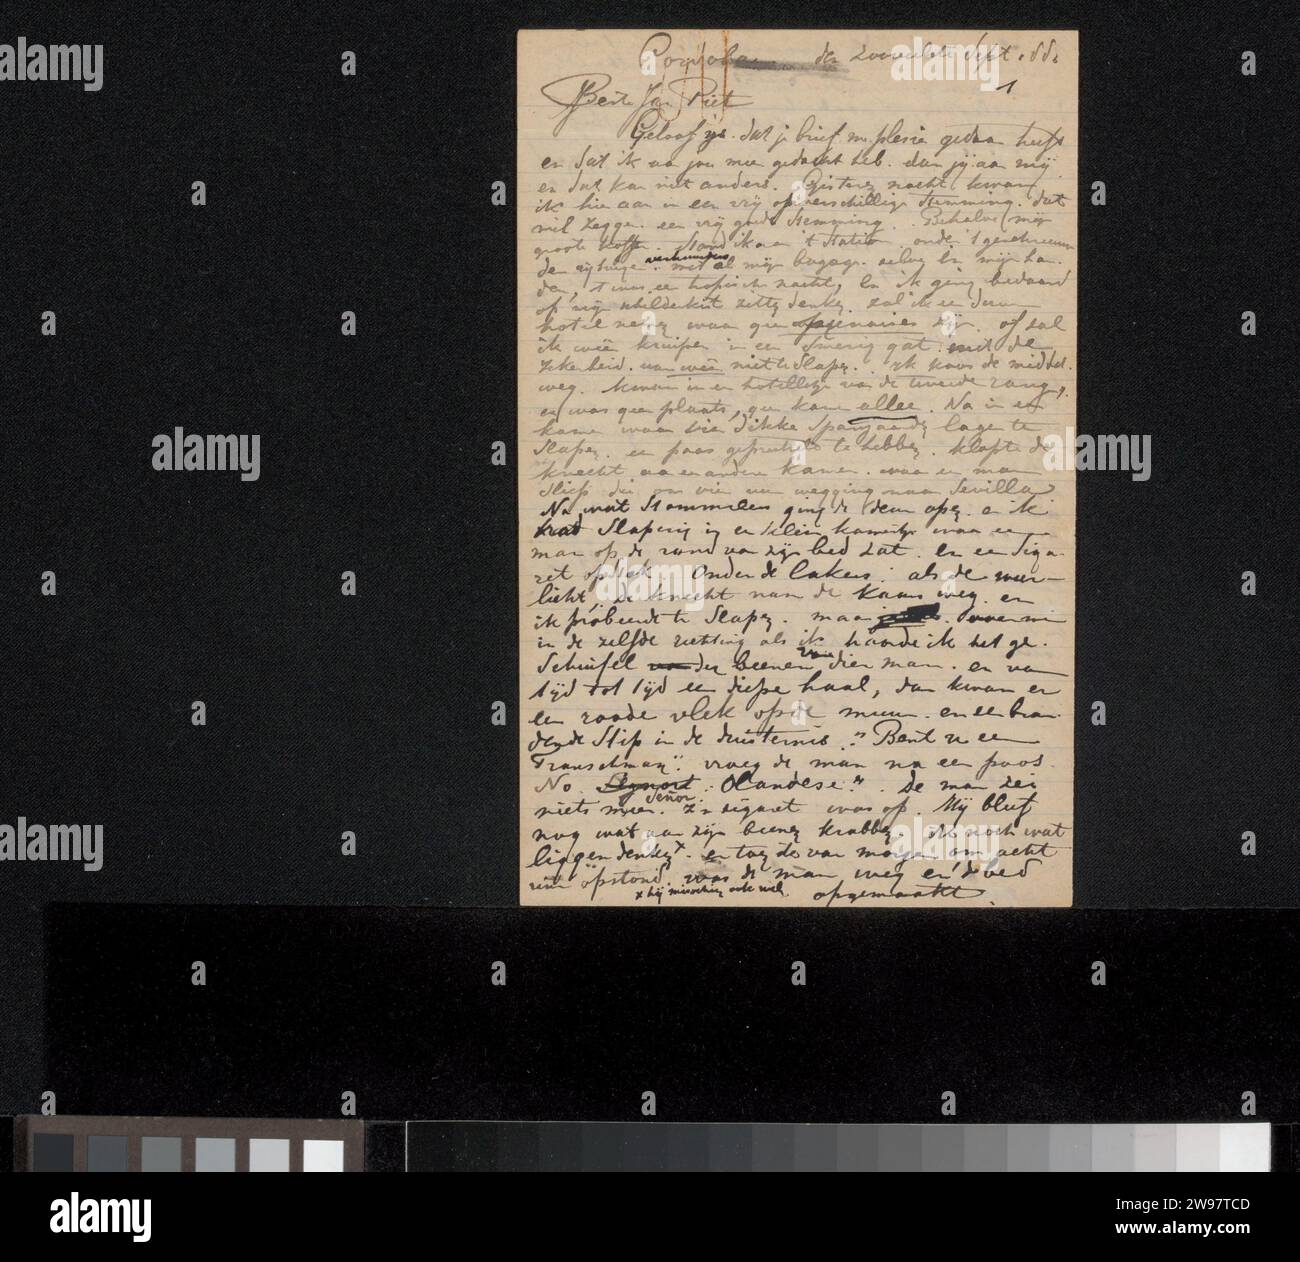 Cordoba den zooveelste Sept. 88.
1
Beste Jan Piet
Geloof ys. dat je brief me plesier gedaan heeft
en dat ik aan jou meer gedacht heb. dan jij aan mij
en dat kan niet anders. Gisteren nacht kwam
ik hier aan in een vrij onverschillige stemming. dat
wil zeggen. een vrij goede stemming. Behalve mijn
groote koffer. Stond ik aan 't station onder 't
den met al mijn bagage. in mijn han-
den, 't was een nacht, En ik ging bedaard
op mijn zitten denken. zal ik een duur
hotel nemen waar geen zijn. of zal
ik weêr kruipen in een smerig gat. met de
zekerheid. van weêr niet te slapen. Ik koos de middel-
weg. kwam in een van de tweede rang.
er was geen plaats, geen kamer alleen. Na in een
kamer waar drie dikke Spanjaarden lagen te
slapen. een poos gepraat te hebben. klopte de
knecht aan een andere kamer. waar een man
sliep die om vier uur wegging naar Sevilla
Na wat stommelen ging de deur open. en ik
trad slaperig in een klein kamertje waar een
man op de rand van zijn bed zat. en een siga-
ret opstak. Onder de lakens. als de weer-
licht, De knecht nam de kaars weg. en
ik probeerde te slapen. maar
in de zelfde richting als ik hoorde ik het ge-
schuifel van der beenen van dien man. en van
tijd tot tijd een diepe haal, dan kwam er
een roode vlek op de muur. en een bran-
dende stip in de duisternis. "Bent u een
Franschman". vroeg de man na een poos.
No. Señor. Olandese". De man zei
niets meer. Z'n sigaret was op. Hij bleef
nog wat aan zijn beenen krabben. ik noch wat
liggen denken x. en toen des van morgen om acht
uur opstond was de man weg en 't bed
x hij misschien ook wel. opgemaakt.
alamy
alamy
alamy
alamy
alamy
2W97TCD
Image ID: 2W97TCD
www.alamy.com